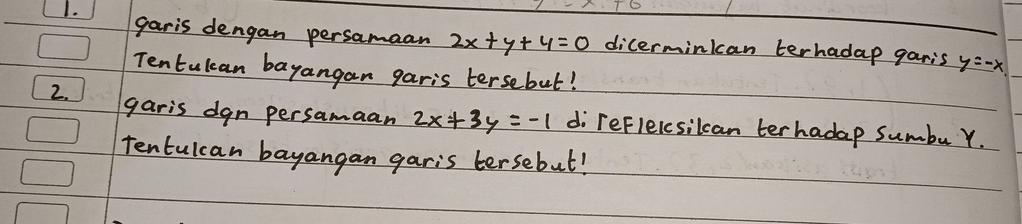 1. garis dengan persamaan 2x+y+4=0 dicerminkan terhadap garis y=-x.
Tentukan bayangan garis tersebut!
2. garis dgn persamaan 2x+3y=-1 direfleksikan terhadap sumbu Y.
Tentukan bayangan garis tersebut!